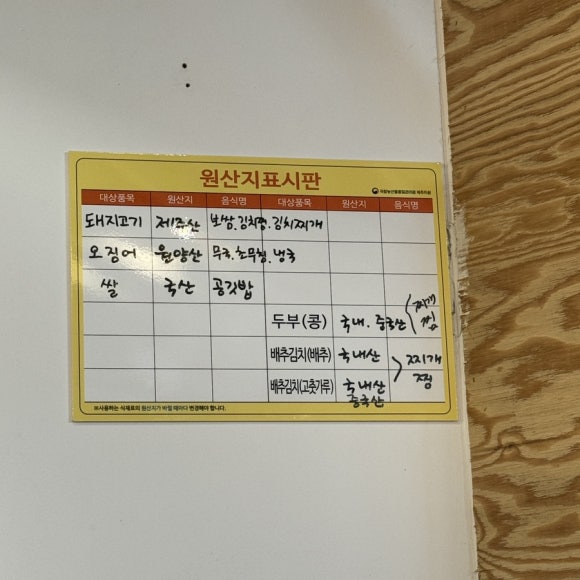 원산지표시판
국립농산물품질관리원 제주지원
대상품목 원산지 음식명 대상품목 원산지 음식명
돼지고기 제주산 보쌈.김치찜.김치찌개
오징어 원양산 무국.초무침.냉국
쌀 국산 공깃밥
두부(콩) 국내.중국산 찌개 찜
배추김치(배추) 국내산 찌개
배추김치(고춧가루) 국내산 찜
중국산
※사용하는 식재료의 원산지가 바뀔 때마다 변경해야 합니다.